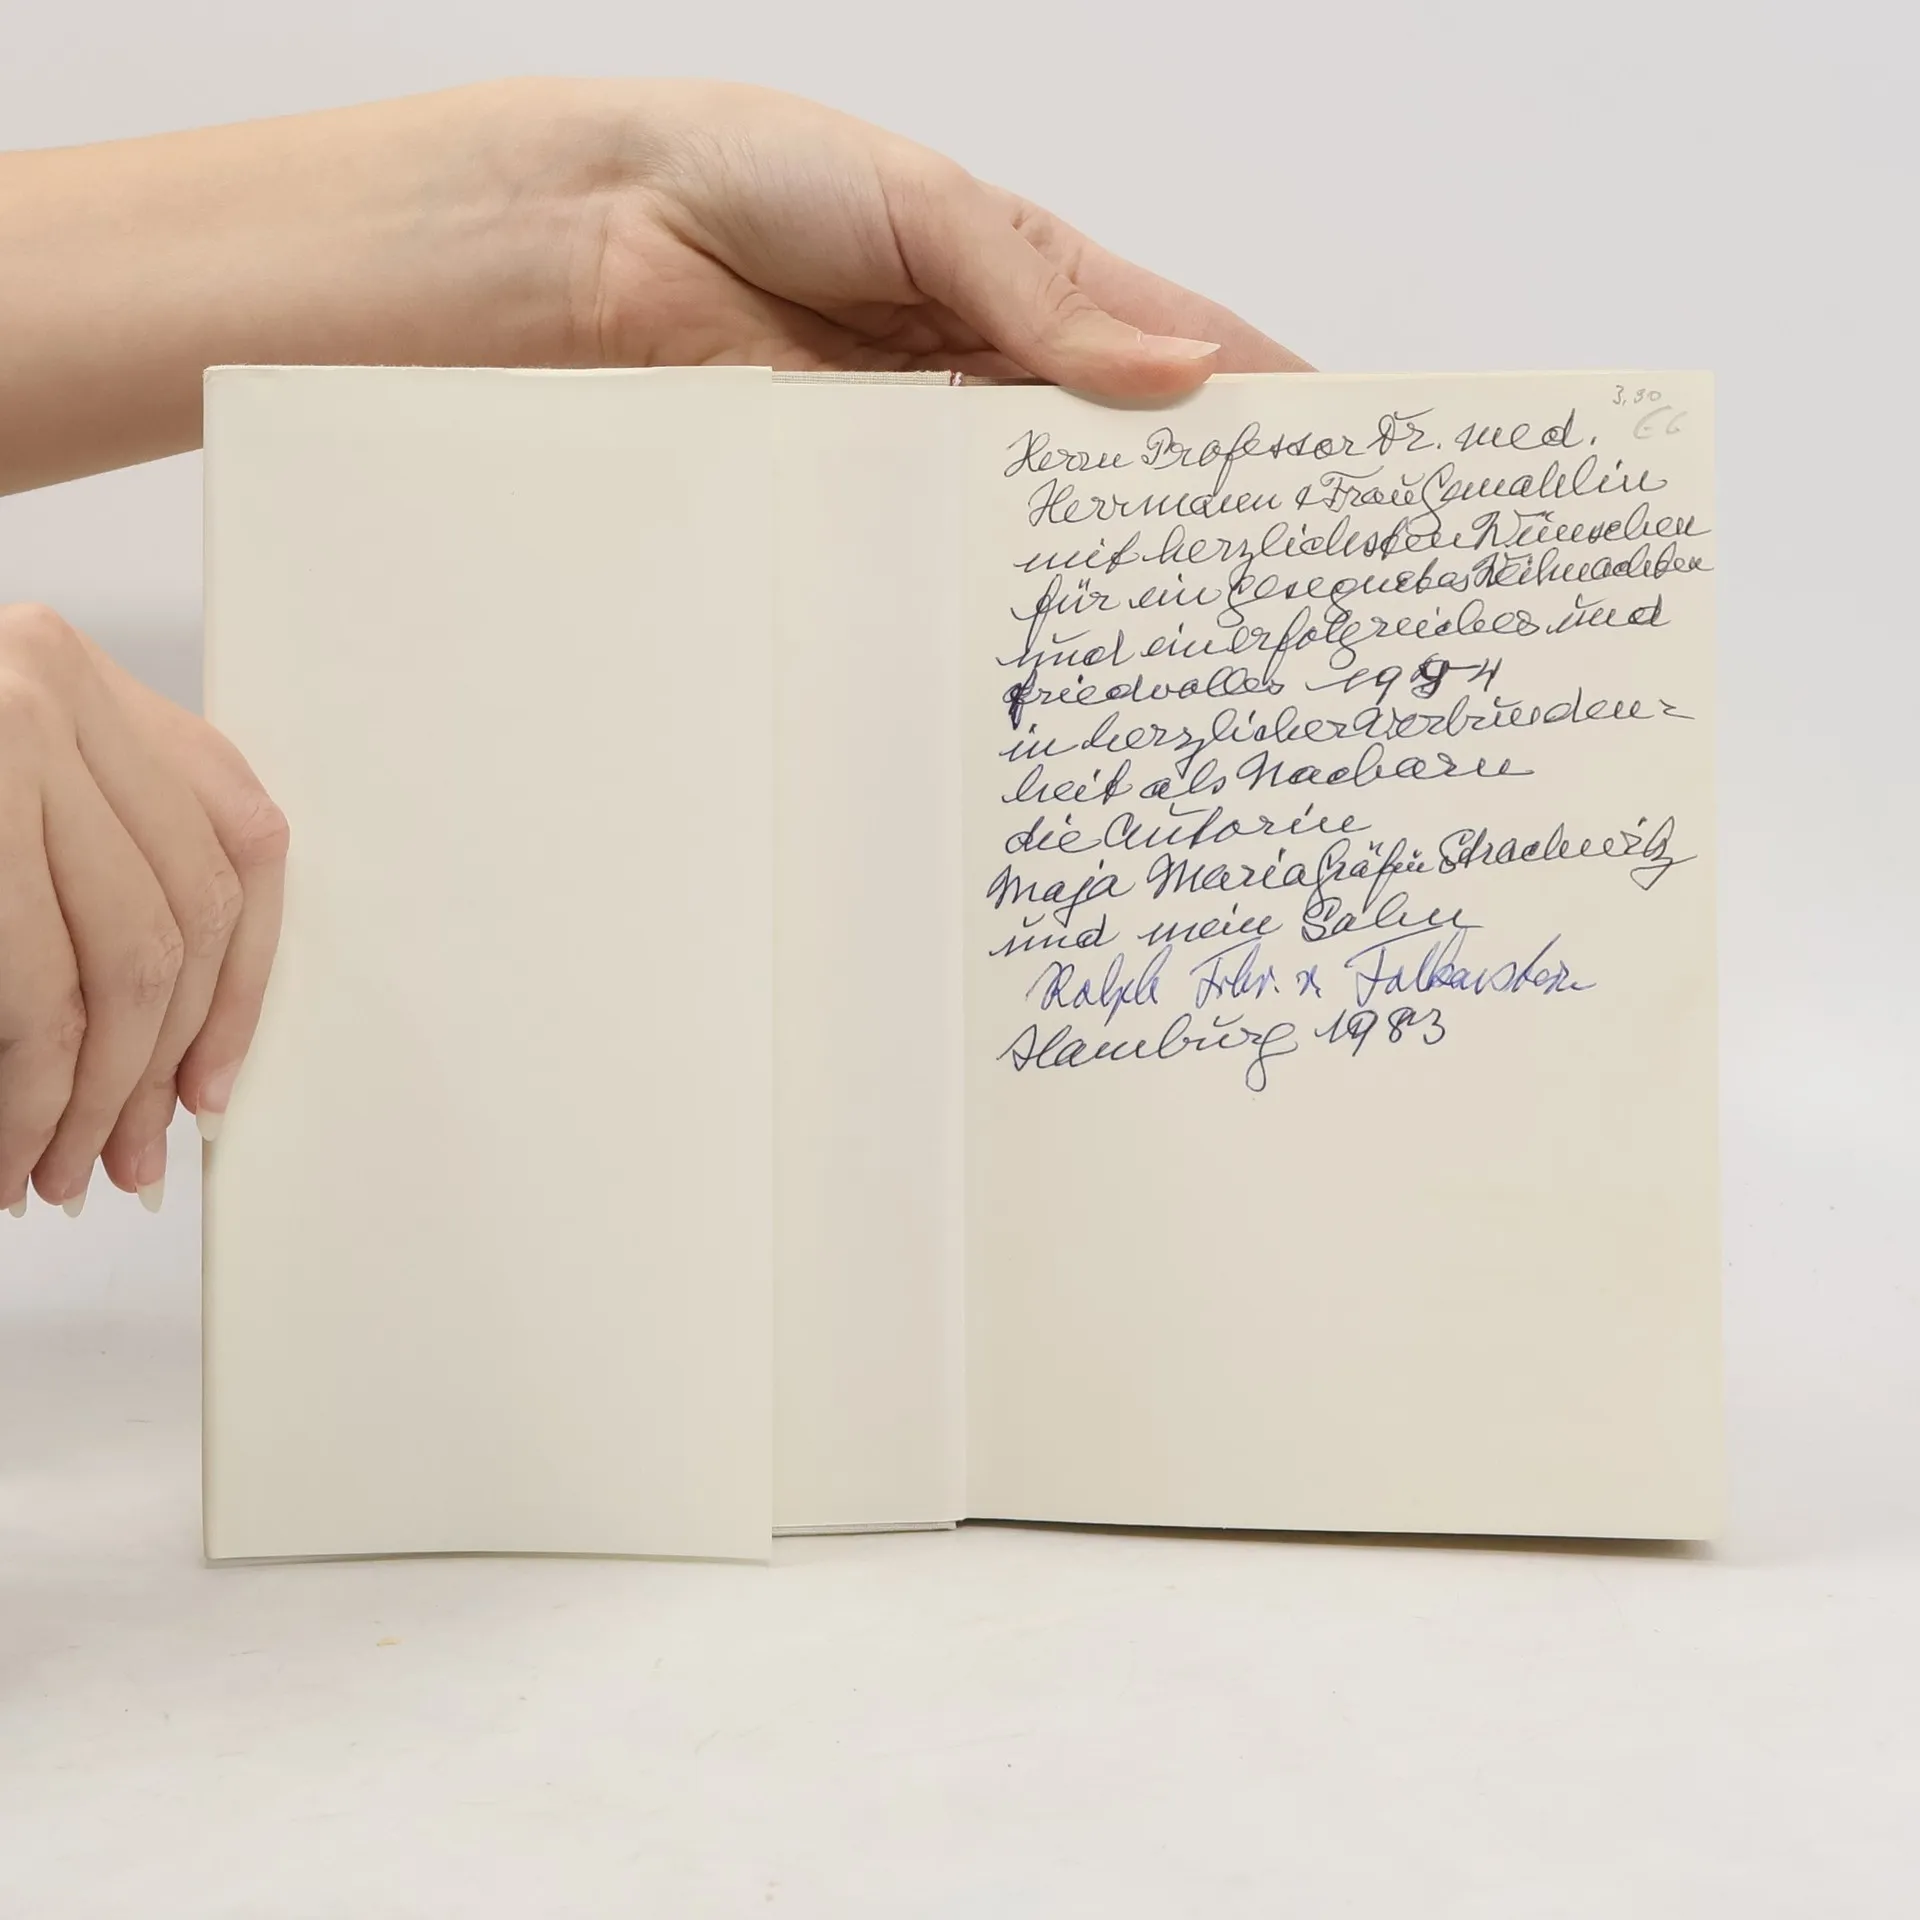 3,90
Herrn Professor Dr. med.
Herrmann & Frau Gemahlin
mit herzlichsten Wünschen
für ein gesegnetes Weihnachten
und ein erfolgreiches und
friedvolles 1984
in herzlicher Verbunden=
heit als Nachbarn
die Autorin
Maja Maria Gräfin Strachwitz
und mein Sohn
Ralph Frhr. v. Falkenstein
Hamburg 1983